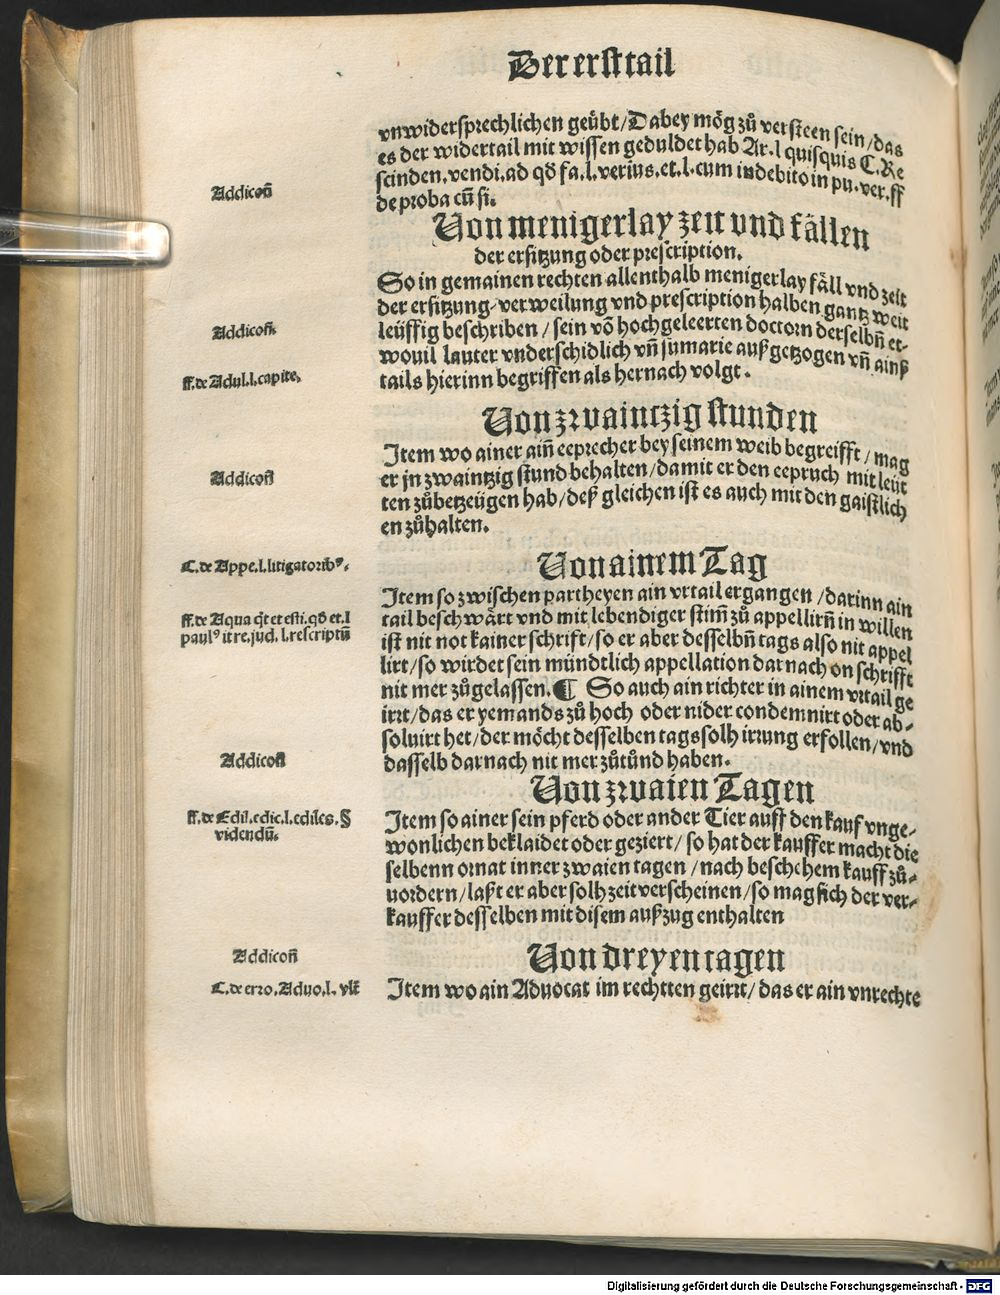 Der erst tail
vnwidersprechlichen geübt/Dabey mög zů versteen sein/das
es der widertail mit wissen geduldet hab Ar.l quisquis C.Re
scinden.vendi.ad qđ fa.l.verius.et.l.cum indebito in pu.ver.ff
de proba cū si.
Addicoñ
Von menigerlay zeit vnd fällen
der ersitzung oder prescription.
So in gemainen rechten allenthalb menigerlay fäll vnd zeit
der ersitzung/verweilung vnd prescription halben gantz weit
leüffig beschriben/sein võ hochgeleerten doctorn derselbñ et-
wouil lauter vnderschidlich vñ sumarie auß getzogen vñ ainß
tails hierinn begriffen als hernach volgt.
Addicoñ.
ff.de Adul.l.capite.
Von zwaintzig stunden
Item wo ainer aiñ eeprecher bey seinem weib begreifft/mag
er jn zwaintzig stund behalten/damit er den eepruch mit leüt
ten zůbetzeügen hab/deß gleichen ist es auch mit den gaistlich
en zůhalten.
Addicoñ
Von ainem Tag
C.de Appe.l.litigatoribꝰ.
Item so zwischen partheyen ain vrtail ergangen/darinn ain
tail beschwärt vnd mit lebendiger stim̃ zů appellirñ in willen
ist nit not kainer schrift/so er aber desselbñ tags also nit appel
lirt/so wirdet sein mündtlich appellation darnach on schrifft
nit mer zůgelassen.¶ So auch ain richter in ainem vrtail ge
irrt/das er yemands zů hoch oder nider condemnirt oder ab-
soluirt het/der möcht desselben tags solh irrung erfollen/vnd
dasselb darnach nit mer zůtůnd haben.
ff.de Aqua qt et esti.qđ et.l
paulꝰ it re.jud.l.rescriptū
Addicoñ
Von zwaien Tagen
Item so ainer sein pferd oder ander Tier auff den kauf vnge-
wonlichen beklaidet oder geziert/so hat der kauffer macht die
selbenn ornat inner zwaien tagen/nach beschehem kauff zů-
uordern/laßt er aber solh zeit verscheinen/so mag sich der ver-
kauffer desselben mit disem außzug enthalten
ff.de Edil.edic.l.ediles.§
videndū.
Addicoñ
Von dreyen tagen
C.de erro.Aduo.l.vlt
Item wo ain Aduocat im rechtten geirrt/das er ain vnrechte
Digitalisierung gefördert durch die Deutsche Forschungsgemeinschaft - DFG